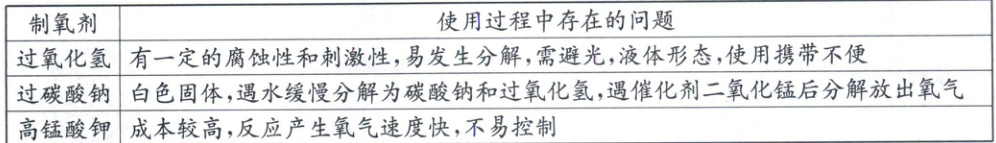 制氧剂 使用过程中存在的问题
过氧化氢 有一定的腐蚀性和刺激性,易发生分解,需避光,液体形态,使用携带不便
过碳酸钠 白色固体,遇水缓慢分解为碳酸钠和过氧化氢,遇催化剂二氧化锰后分解放出氧气
高锰酸钾 成本较高,反应产生氧气速度快,不易控制